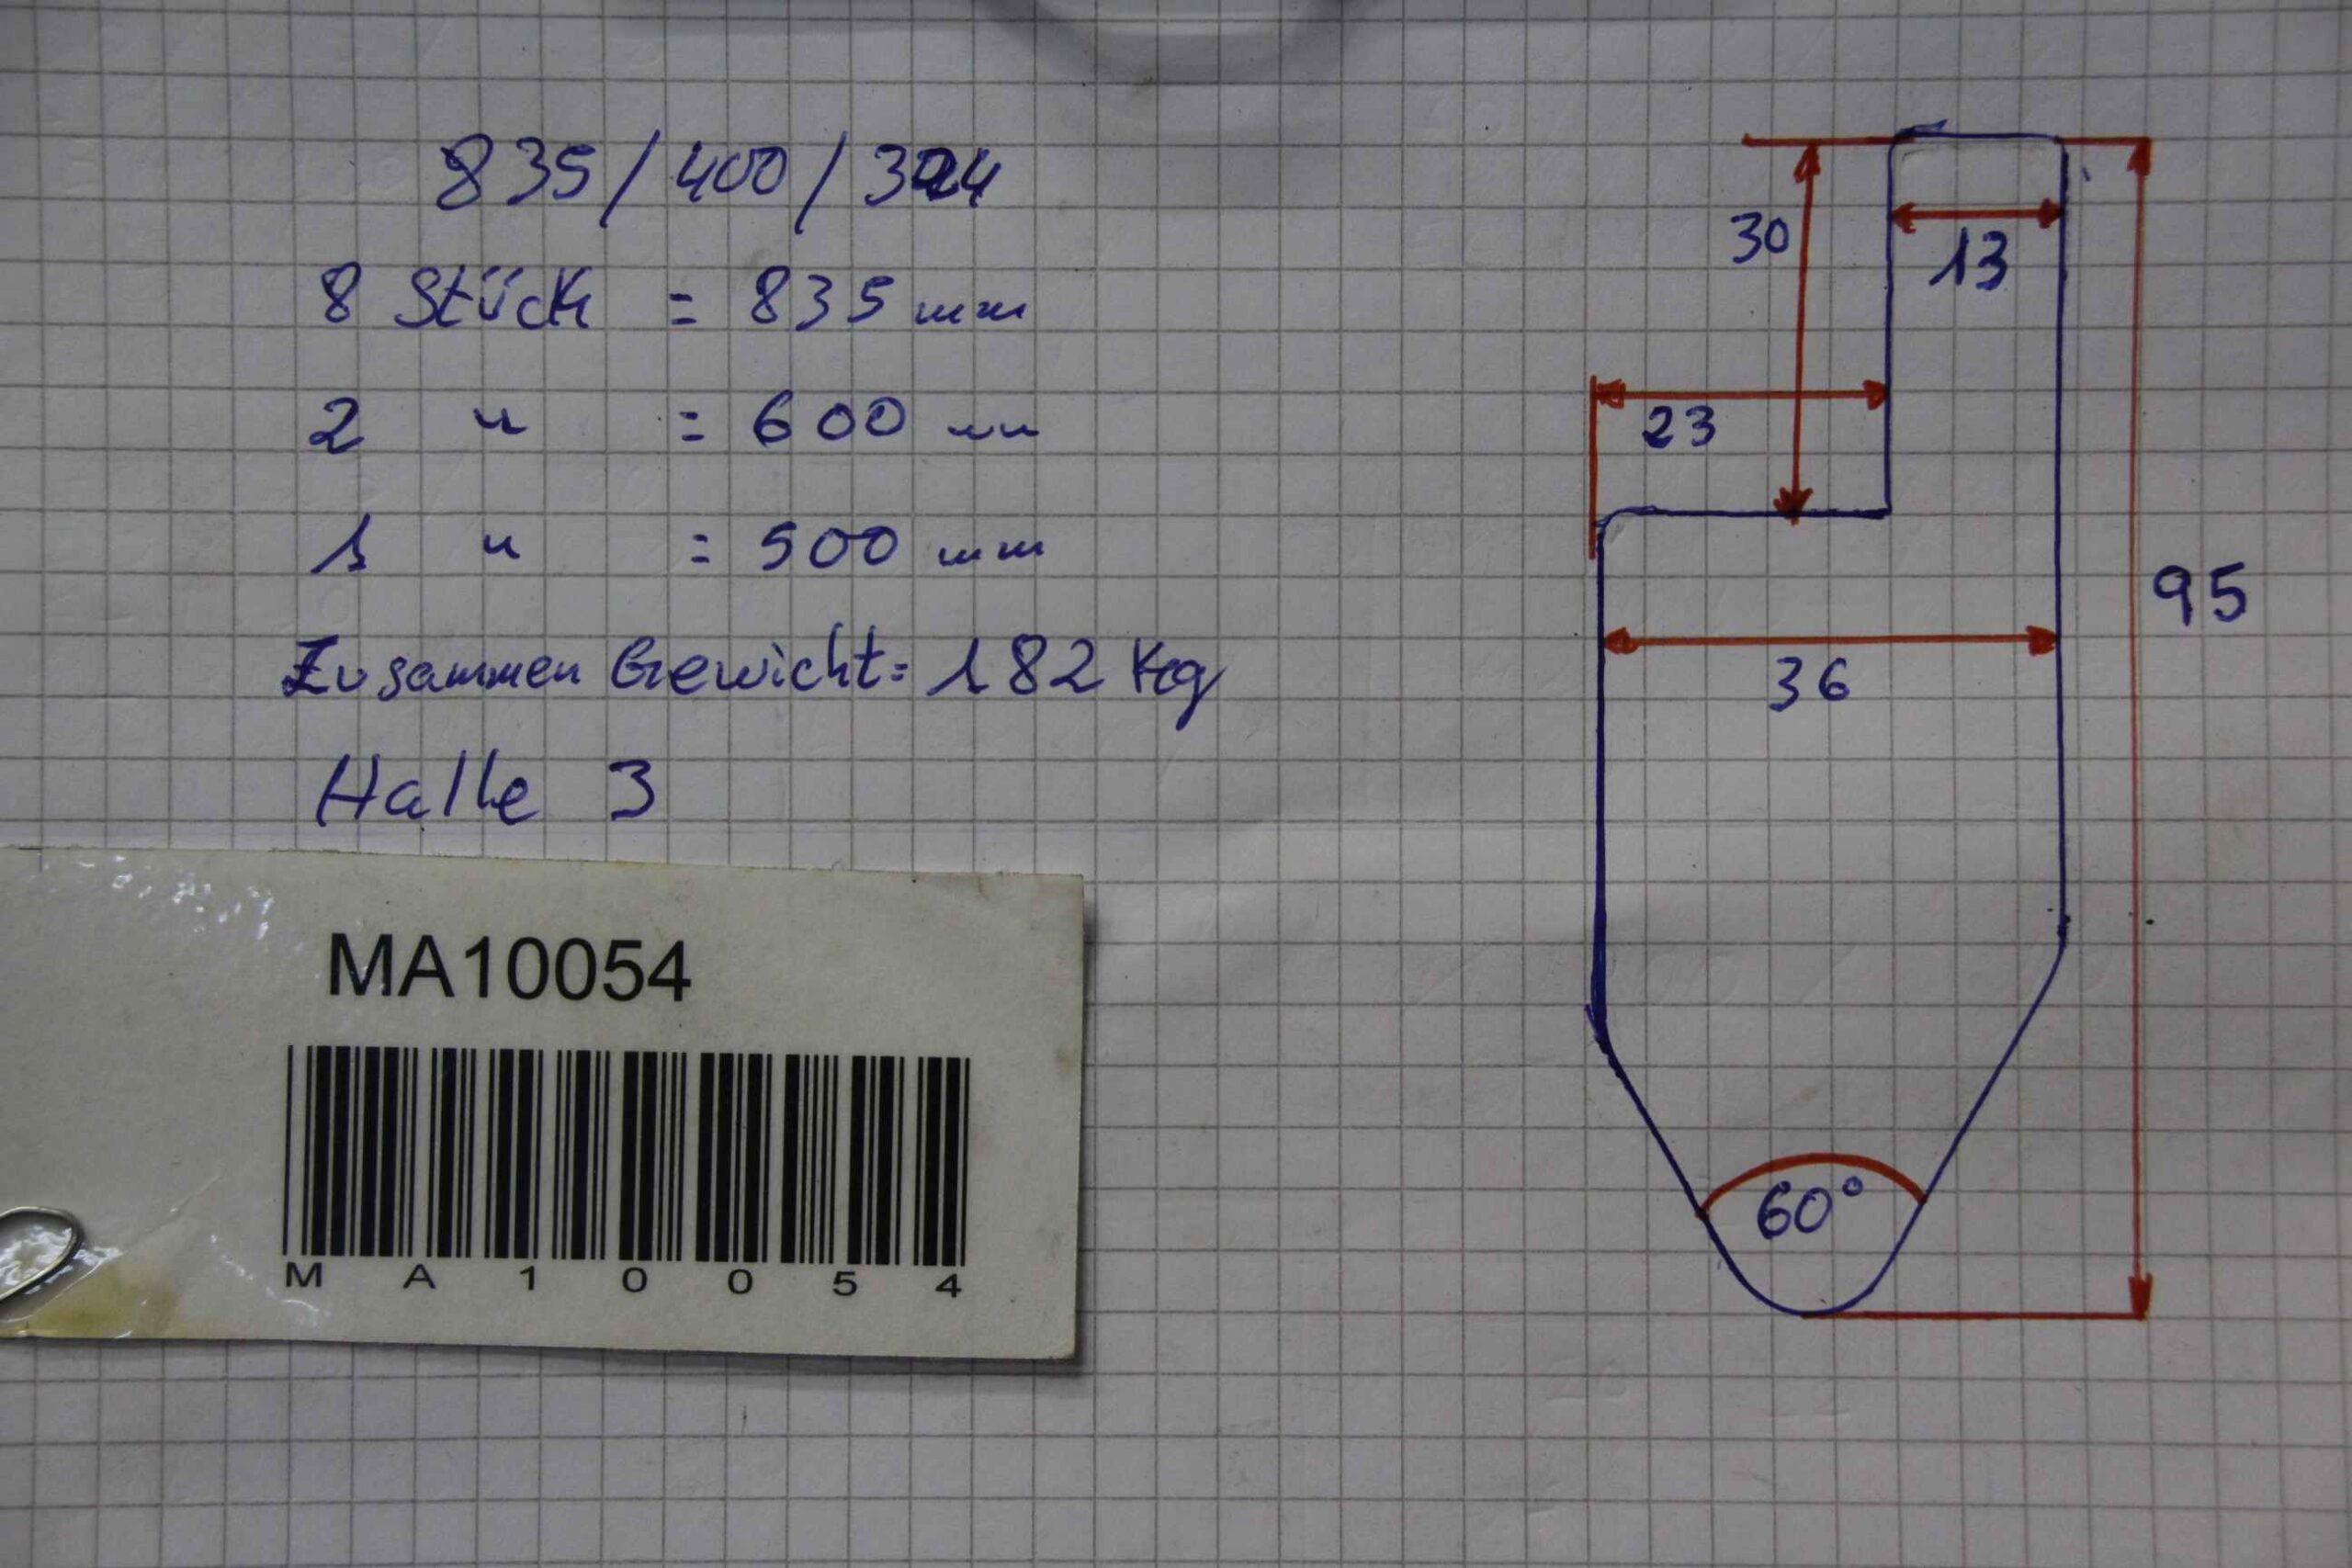 835/400/
8 Stück = 835 mm
2 " = 600 mm
1 " = 500 mm
Zusammen Gewicht = 182 Kg
Halle 3
MA10054
MA10054
30
13
23
36
95
60°